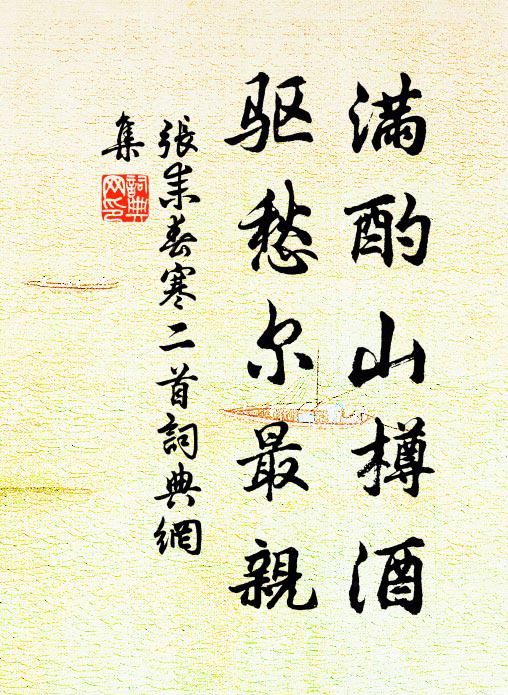 满酌山樽酒
驱愁尔最親
張耒春寒二首詞典網
集
詞典
网印